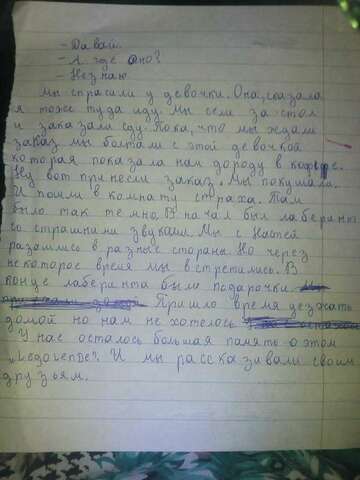 - Давай.
- А где оно?
- Незнаю
Мы спрасили у девочки. Она, сказала
я тоже туда иду. Мы сели за стол
и заказали еду. Пока, что мы ждали
заказ мы болтали с этой девочкой
которая показала нам дорогу в кофефе.
Ну вот принесли заказ. Мы покушали.
И пошли в комнату страха. Там
было так темно. В начал был лаберинт
со страшними звуками. Мы с Настей
разошлись в разные стороны. Но через
некоторое время мы встретились. В
конце лаберинта были подарочки.
Прошло время уезжать
домой но нам не хотелось
У нас осталось большая память о этом
„Legolende". И мы рассказивали своим
друзьям.